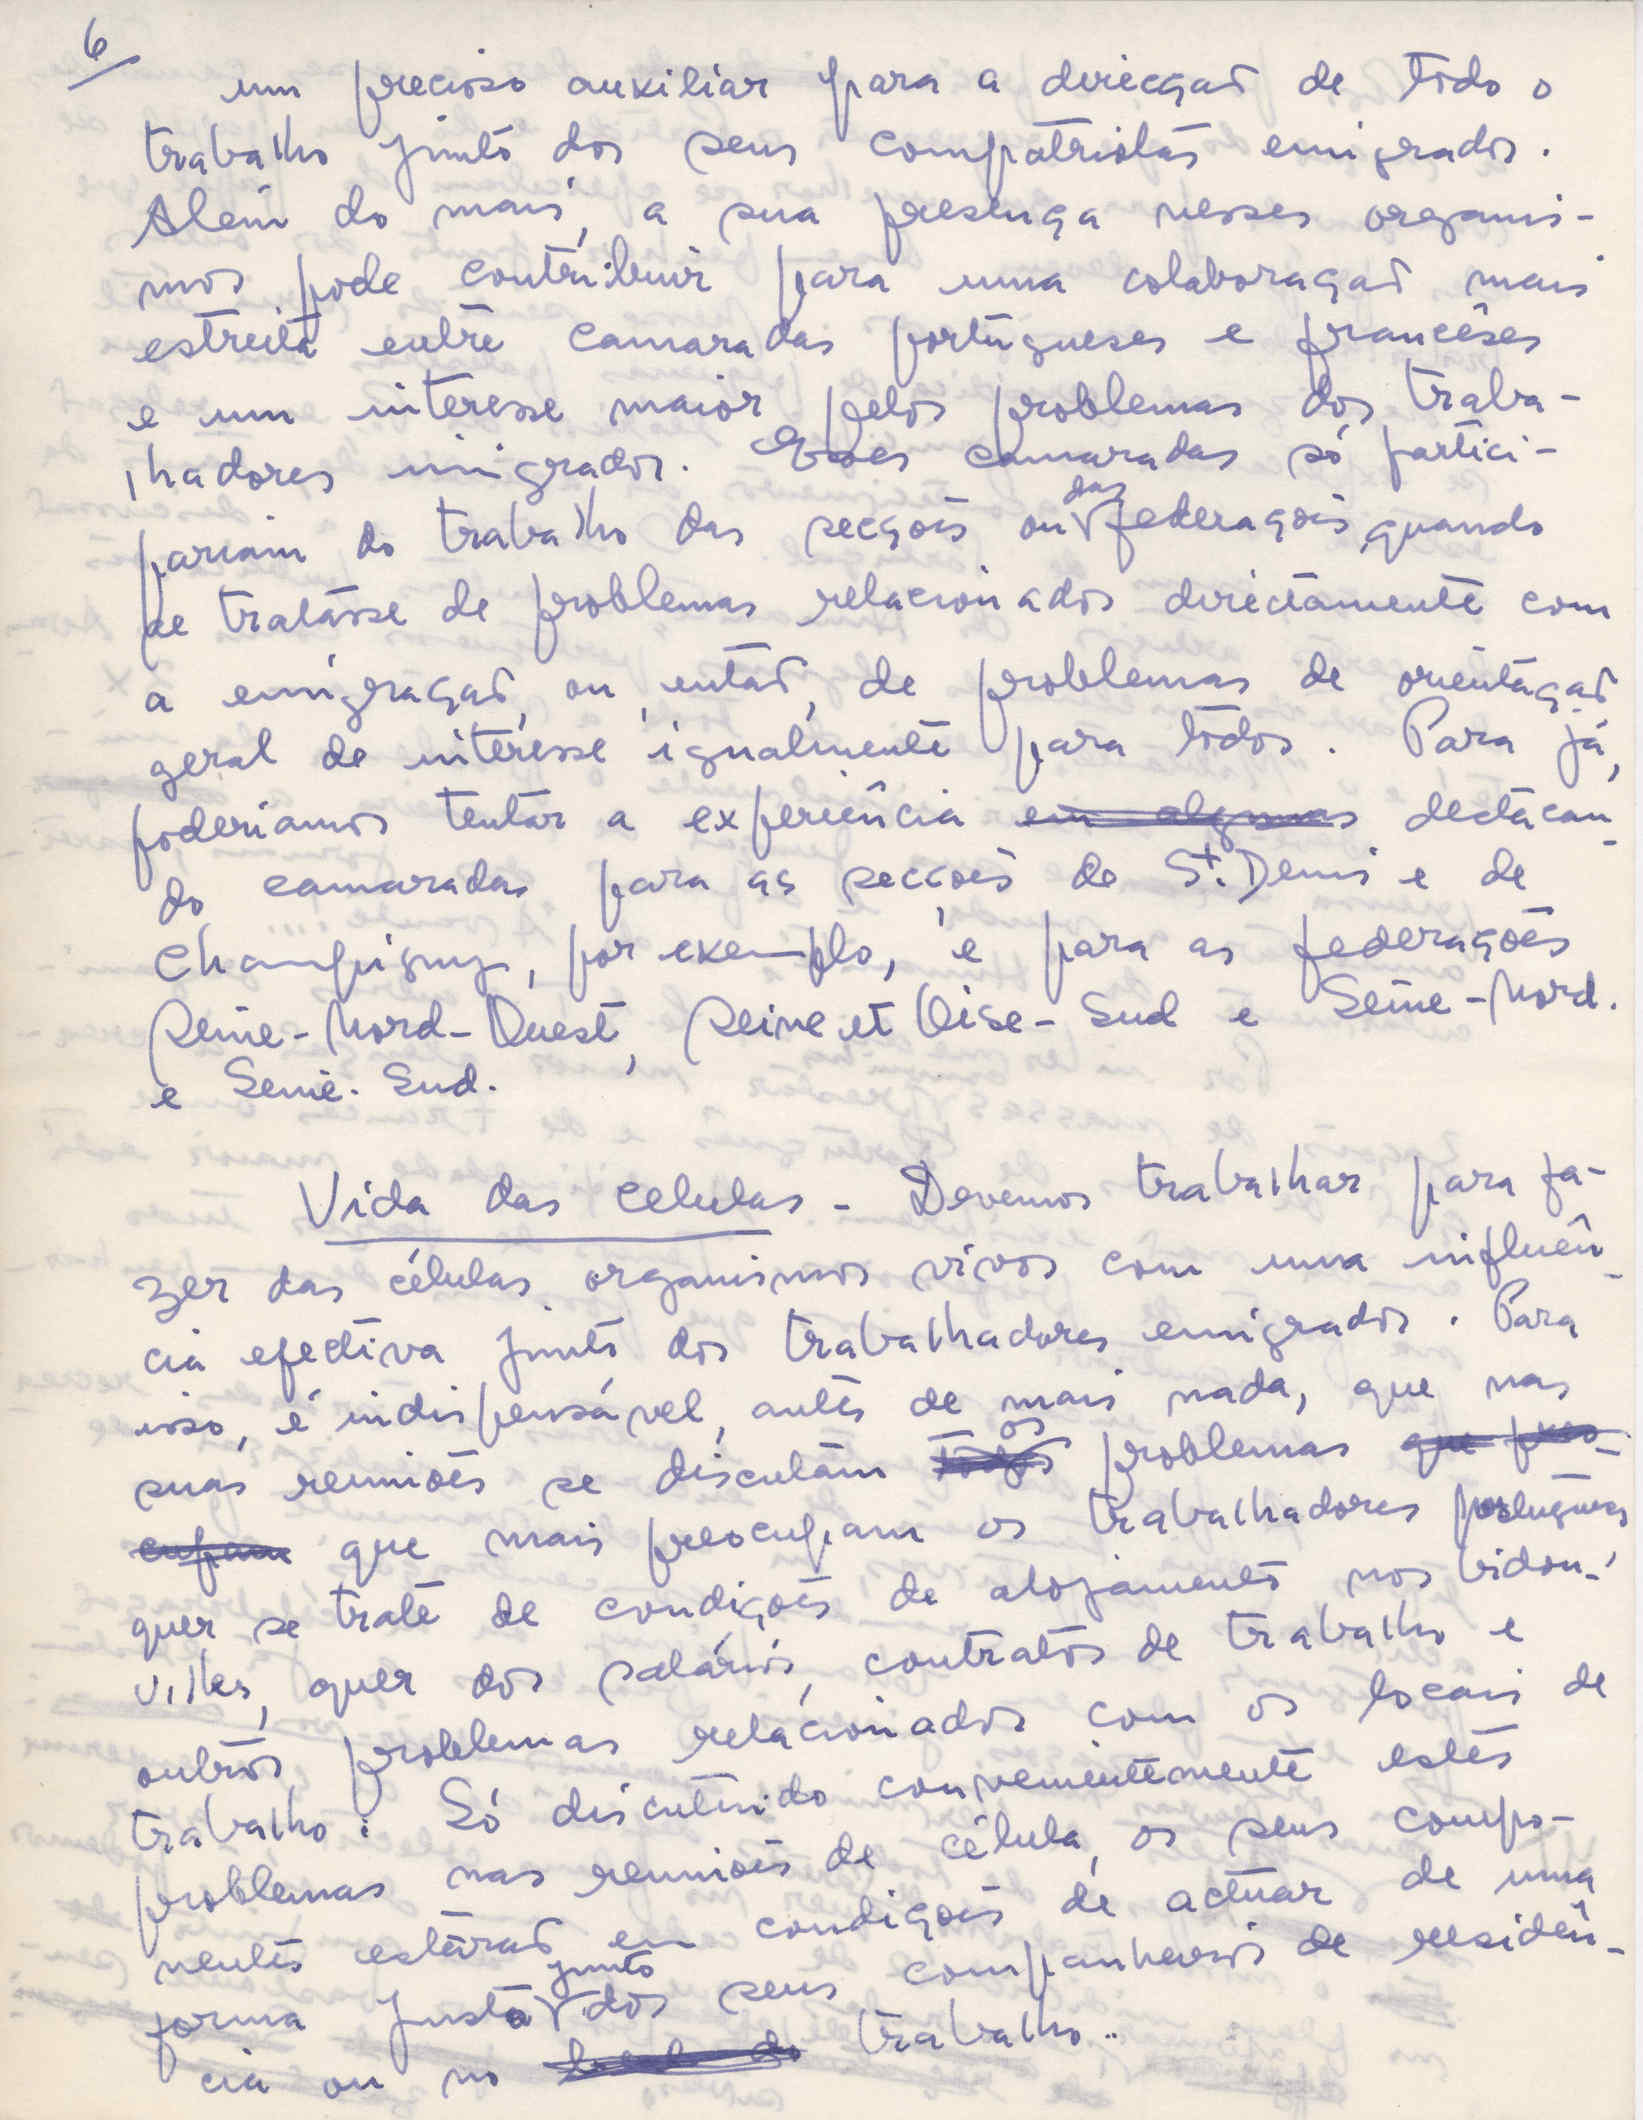 6
um precioso auxiliar para a direcção de todo o
trabalho junto dos seus compatriotas emigrados.
Além do mais, a sua presença nesses organis-
mos pode contribuir para uma colaboração mais
estreita entre camaradas portugueses e francêses
e um interesse maior pelos problemas dos traba-
lhadores imigrados. Esses camaradas só partici-
pariam do trabalho das secções ou das federações quando
se tratasse de problemas relacionados directamente com
a emigração, ou, então, de problemas de orientação
geral de interesse igualmente para todos. Para já,
poderíamos tentar a experiência em algumas destacan-
do camaradas para as secções de St. Denis e de
Champigny, por exemplo, e para as federações
Seine-Nord-Ouest, Seine et Oise-Sud e Seine-Nord.
e Seine-Sud.
Vida das celulas - Devemos trabalhar para fa-
zer das células organismos vivos com uma influên-
cia efectiva junto dos trabalhadores emigrados. Para
isso, é indispensável, antes de mais nada, que nas
suas reuniões se discutam todos os problemas que preo-
cupam que mais preocupam os trabalhadores portugueses
quer se trate de condições de alojamento nos bidon-
villes, quer dos salários, contratos de trabalho e
outros problemas relacionados com os locais de
trabalho. Só discutindo convenientemente estes
problemas nas reuniões de célula, os seus compo-
nentes estarão em condições de actuar de uma
forma justa junto dos seus companheiros de residên-
cia ou no local do trabalho..